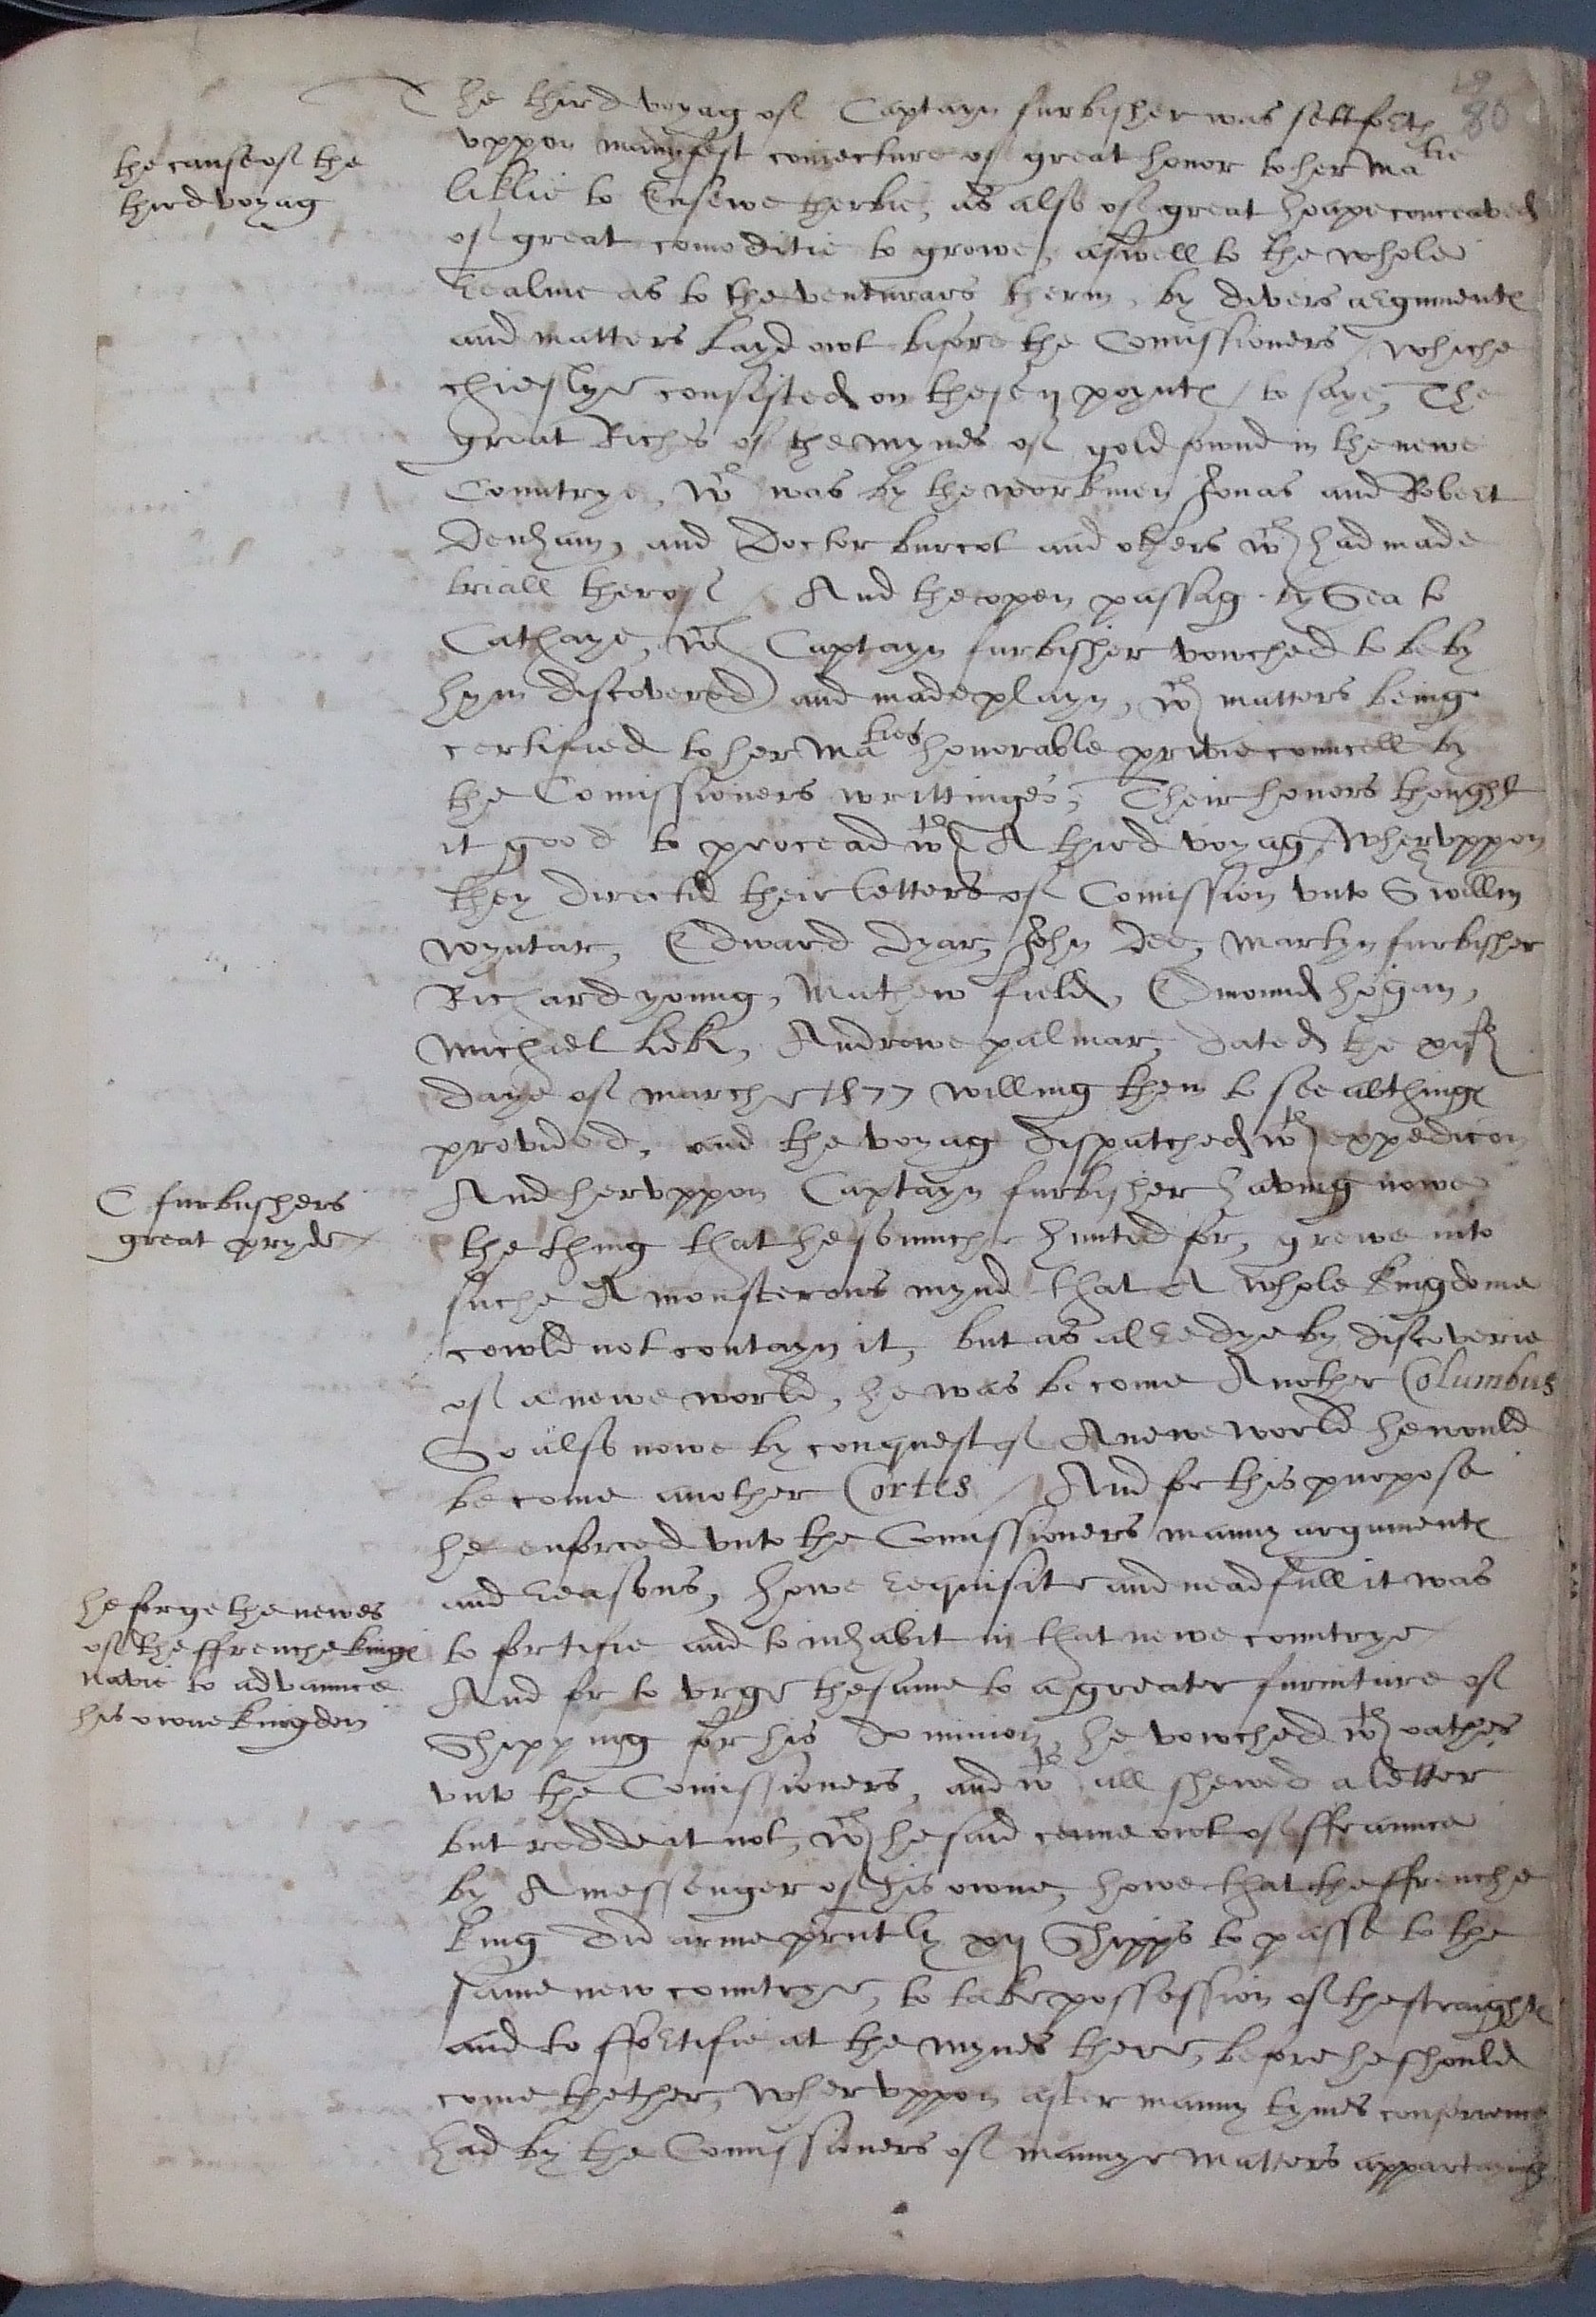 80
The third voyag of Captayn furbisher was sett forth
the cause of the
third voyag
vppon manyfest coniecture of great honor to her Ma tie
liklie to Ensewe therbie, as also of great hoape conceaved
of great comoditie to growe, aswell to the whole
Realme as to the venturars therin, by divers argumentes
and matters layd owt before the Comissioners / whiche
chieflye consisted on these ij poyntes / to saye, The
great Riches of the mynes of gold fownd in the newe
Countrye, wch was by the workmen Jonas and Robert
Denham, and Doctor burcot and others wch had made
triall therof / And the open passag by Sea to
Cathaye, wch Captayn furbisher vowched to be by
hym discovered and made playn, wch matters being
certified to her Ma ties honorable privie councell by
the Comissioners writtinges, Their honors thought
it good to procead wth A third voyag, Whervppon
they directid their letters of Comission vnto Sr willm
wyntar, Edward Dyar, John Dee, Martyn furbisher
Richard young, Mathew field, Edmound hogan,
Michael Lok, Androwe palmar, dated the
daye of marche 1577 willing them to see all thinges
provided, and the voyag dispatched wth expedicon
C furbushers
great pryde
And hervppon Captayn furbisher having nowe
the thing that he so muche hunted for, grewe into
suche A monsterous mynd that A whole kingdome
cowld not contayn it, but as alredye by discoverie
of a newe world, he was become Another Columbus
So also nowe by conquest of A newe world he would
become another Cortes / And for this purpose
he enforced vnto the Comissioners manny argumentes
and reasons, howe requisite and neadfull it was
he forge the newes
of the ffrenche kinges
navie to advaunce
his owne kingdom
to fortifie and to inhabit in that newe countrye
And for to vrge the same to a greater furniture of
Shipping for his dominion, he vowched wth oathes
vnto the Comissioners, and wth all shewed a letter
but redde it not, wch he said came owt of ffraunce
by A messenger of his owne, howe that the ffrenche
king did arme prntly xij Shipps to passe to the
same new countrye, to take possession of the straightes
and to ffortifie at the mynes there, before he should
come thether, whervppon after manny tymes conference
had by the Comissioners of mannye matters appartayning